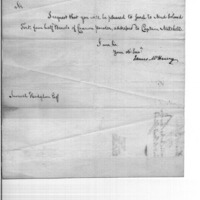 Sir
I request that you will be pleased to send to Mud Island
Fort, four half Barrels of Cannon powder, addressed to Captain Mitchell.
I am Sir
Your Ob. Serv^t
James McHenry
Samuel Hodgdon Esq^r